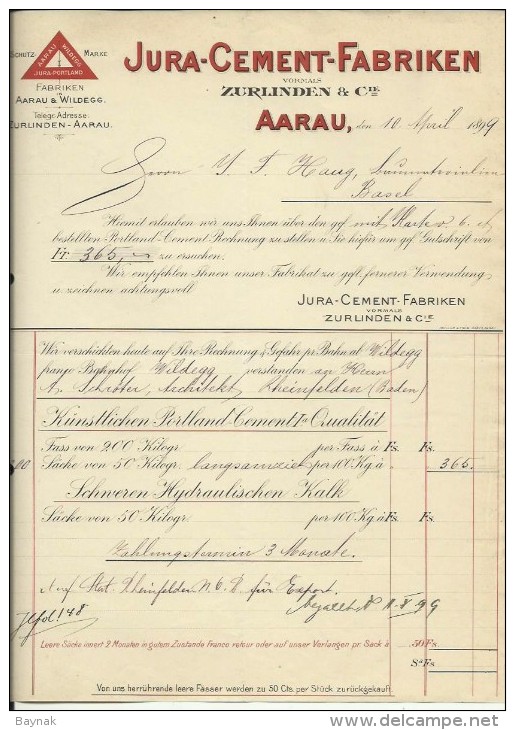 SCHUTZ- MARKE
AARAU WILDEGG
JURA-PORTLAND
FABRIKEN
IN
AARAU & WILDEGG.
Telegr. Adresse:
ZURLINDEN-AARAU.
JURA-CEMENT-FABRIKEN
VORMALS
ZURLINDEN & CIE.
AARAU, den 10 April 1899
Herrn J. F. Haug,
Basel
Hiemit erlauben wir uns Ihnen über den gefl. mit Karte v. 6. ct
bestellten Portland-Cement Rechnung zu stellen u. Sie hiefür um gefl. Gutschrift von
Fr. 365,- zu ersuchen.
Wir empfehlen Ihnen unser Fabrikat zu gefl. fernerer Verwendung
u. zeichnen achtungsvoll
JURA-CEMENT-FABRIKEN
VORMALS
ZURLINDEN & CIE.
Wir verschickten heute auf Ihre Rechnung & Gefahr pr. Bahn ab Wildegg
franco Bahnhof Wildegg verstanden an Herrn
A. Schröter, Architekt Rheinfelden (Baden)
Künstlichen Portland-Cement Ia Qualität
Fass von 200 Kilogr. per Fass à Fs. Fs.
Säcke von 50 Kilogr. per 100 Kg. à 365.
Schweren Hydraulischen Kalk
Säcke von 50 Kilogr. per 100 Kg. à Fs. Fs.
Zahlungstermin 3 Monate.
Auf Stat. Rheinfelden für Export.
Leere Säcke innert 2 Monaten in gutem Zustande Franco retour oder auf unser Verlangen pr. Sack à 50 Fs.
Sa Fs.
Von uns herrührende leere Fässer werden zu 50 Cts. per Stück zurückgekauft.
Baynak
www.delcampe.net